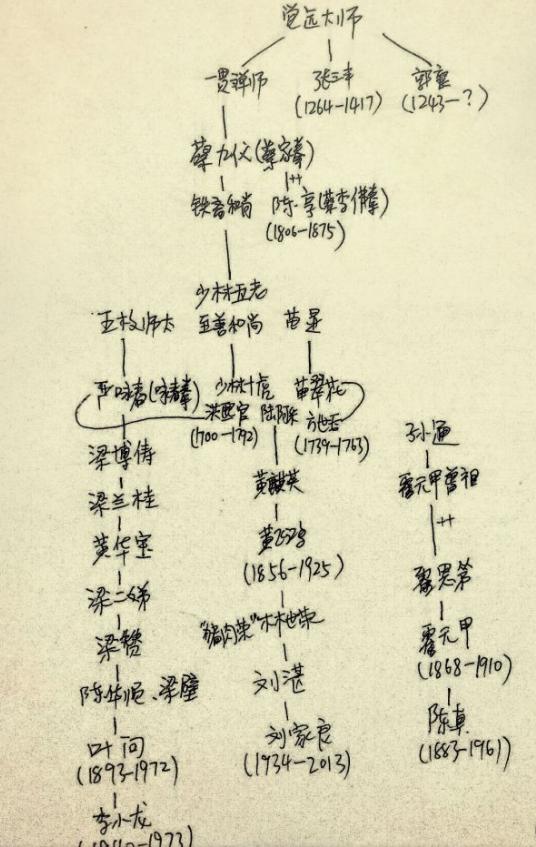 觉远大师
一贯禅师 张三丰 郭襄
(1264-1417) (1243-?)
蔡九仪(蔡家拳)
铁斋和尚 陈·享(蔡李佛拳)
(1806-1875)
少林五老
五枚师太 至善和尚 苗显
严咏春(咏春拳) 少林十虎 苗翠花
洪熙官 陆阿采 方世玉
(1700-1792) (1739-1763)
孙通
梁博俦 黄麒英 霍元甲曾祖
梁兰桂
黄华宝 黄飞鸿
(1856-1925) 霍恩第
梁二娣 "猪肉荣"林世荣
梁赞 霍元甲
(1868-1910)
陈华顺、梁璧 刘湛
陈真
叶问 刘家良 (1883-1961)
(1893-1972) (1934-2013)
李小龙
(1940-1973)